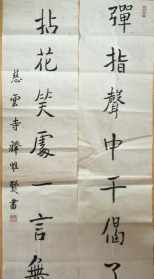 彈指聲中千偈了
拈花笑處一言無
慈雲寺釋惟賢書